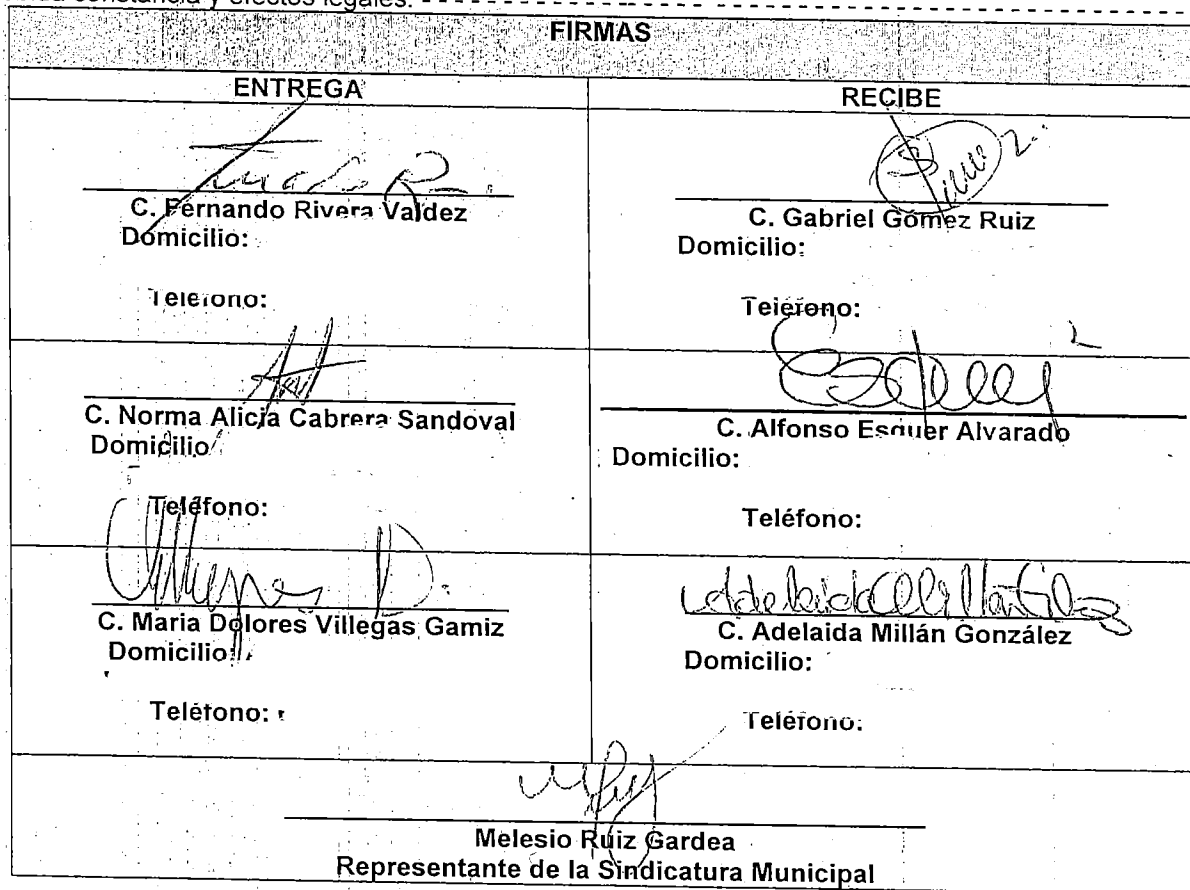 constancia y efectos legales. - - - - - - - - - - - - - - - - - - - - - - - - - - - - - - - - - - - - - - - -
FIRMAS
ENTREGA
RECIBE
C. Fernando Rivera Valdez
Domicilio:
Teléfono:
C. Gabriel Gómez Ruiz
Domicilio:
Teléfono:
C. Norma Alicia Cabrera Sandoval
Domicilio
Teléfono:
C. Alfonso Esquer Alvarado
Domicilio:
Teléfono:
C. Maria Dolores Villegas Gamiz
Domicilio:
Teléfono:
Adelaida Millan Glez
C. Adelaida Millán González
Domicilio:
Teléfono:
Melesio Ruiz Gardea
Representante de la Sindicatura Municipal